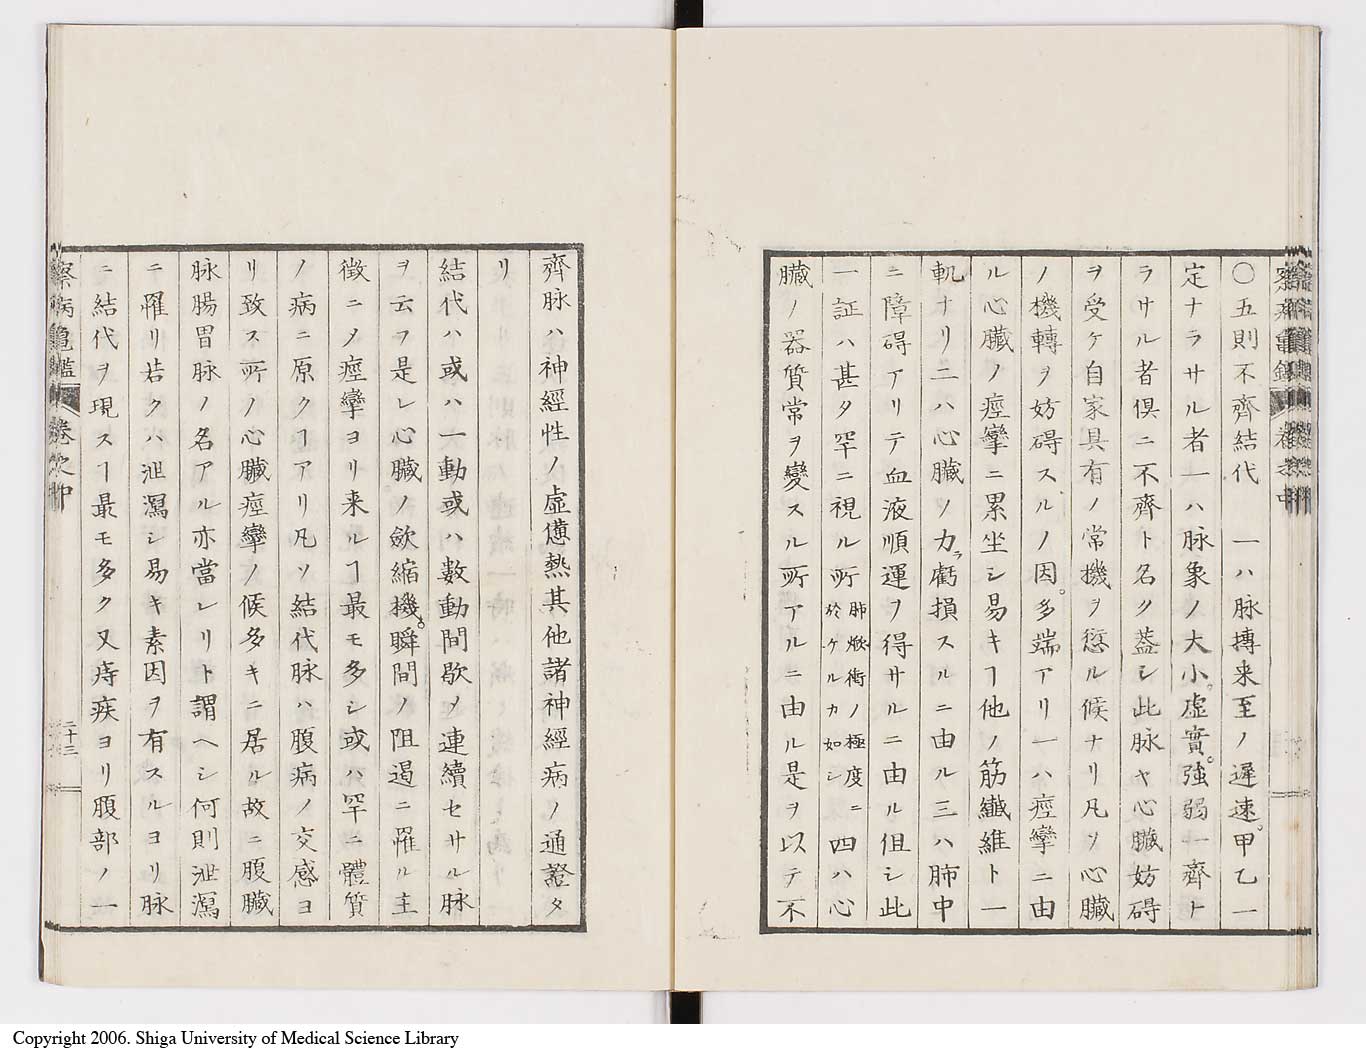 〇五則不齊結代　一ハ脉摶来至ノ遲速。甲乙一
定ナラサル者一ハ脉象ノ大小。虚實。強弱一齊ト
ラサル者倶ニ不齊ト名ク蓋シ此脉ヤ心臓妨碍
ヲ受ケ自家具有ノ常機ヲ愆ル候ナリ凡ソ心臓
ノ機轉ヲ妨碍スルノ因。多端アリ一ハ痙攣ニ由
ル心臓ノ痙攣ニ累坐シ易キヿ他ノ筋纎維ト一
軌ナリ二ハ心臓ノ力ヲ虧損スルニ由ル三ハ肺中
ニ障碍アリテ血液順運ヲ得サルニ由ル但シ此
一証ハ甚タ罕ニ視ル所肺焮衝ノ極度ニ於ケルカ如シ四ハ心
臓ノ器質常ヲ變スル所アルニ由ル是ヲ以テ不
齊脉ハ神經性ノ虚憊熱其他諸神經病ノ通證タ
リ
結代ハ或ハ一動或ハ數動間歇メ連續セサル脉
ヲ云フ是レ心臓ノ歛縮機瞬間ノ阻遏ニ罹ル主
徴ニメ痙攣ヨリ来ルヿ最モ多シ或ハ罕ニ體質
ノ病ニ原クヿアリ凡ソ結代脉ハ腹病ノ交感ヨ
リ致ス所ノ心臓痙攣ノ候多キニ居ル故ニ腹臓
脉腸胃脉ノ名アル亦當レリト謂ヘシ何則泄瀉
ニ罹リ若クハ泄瀉シ易キ素因ヲ有スルヨリ脉
ニ結代ヲ現スヿ最モ多ク又痔疾ヨリ腹部ノ一
察病亀鑑　巻之中
二十三
Copyright 2006. Shiga University of Medical Science Library